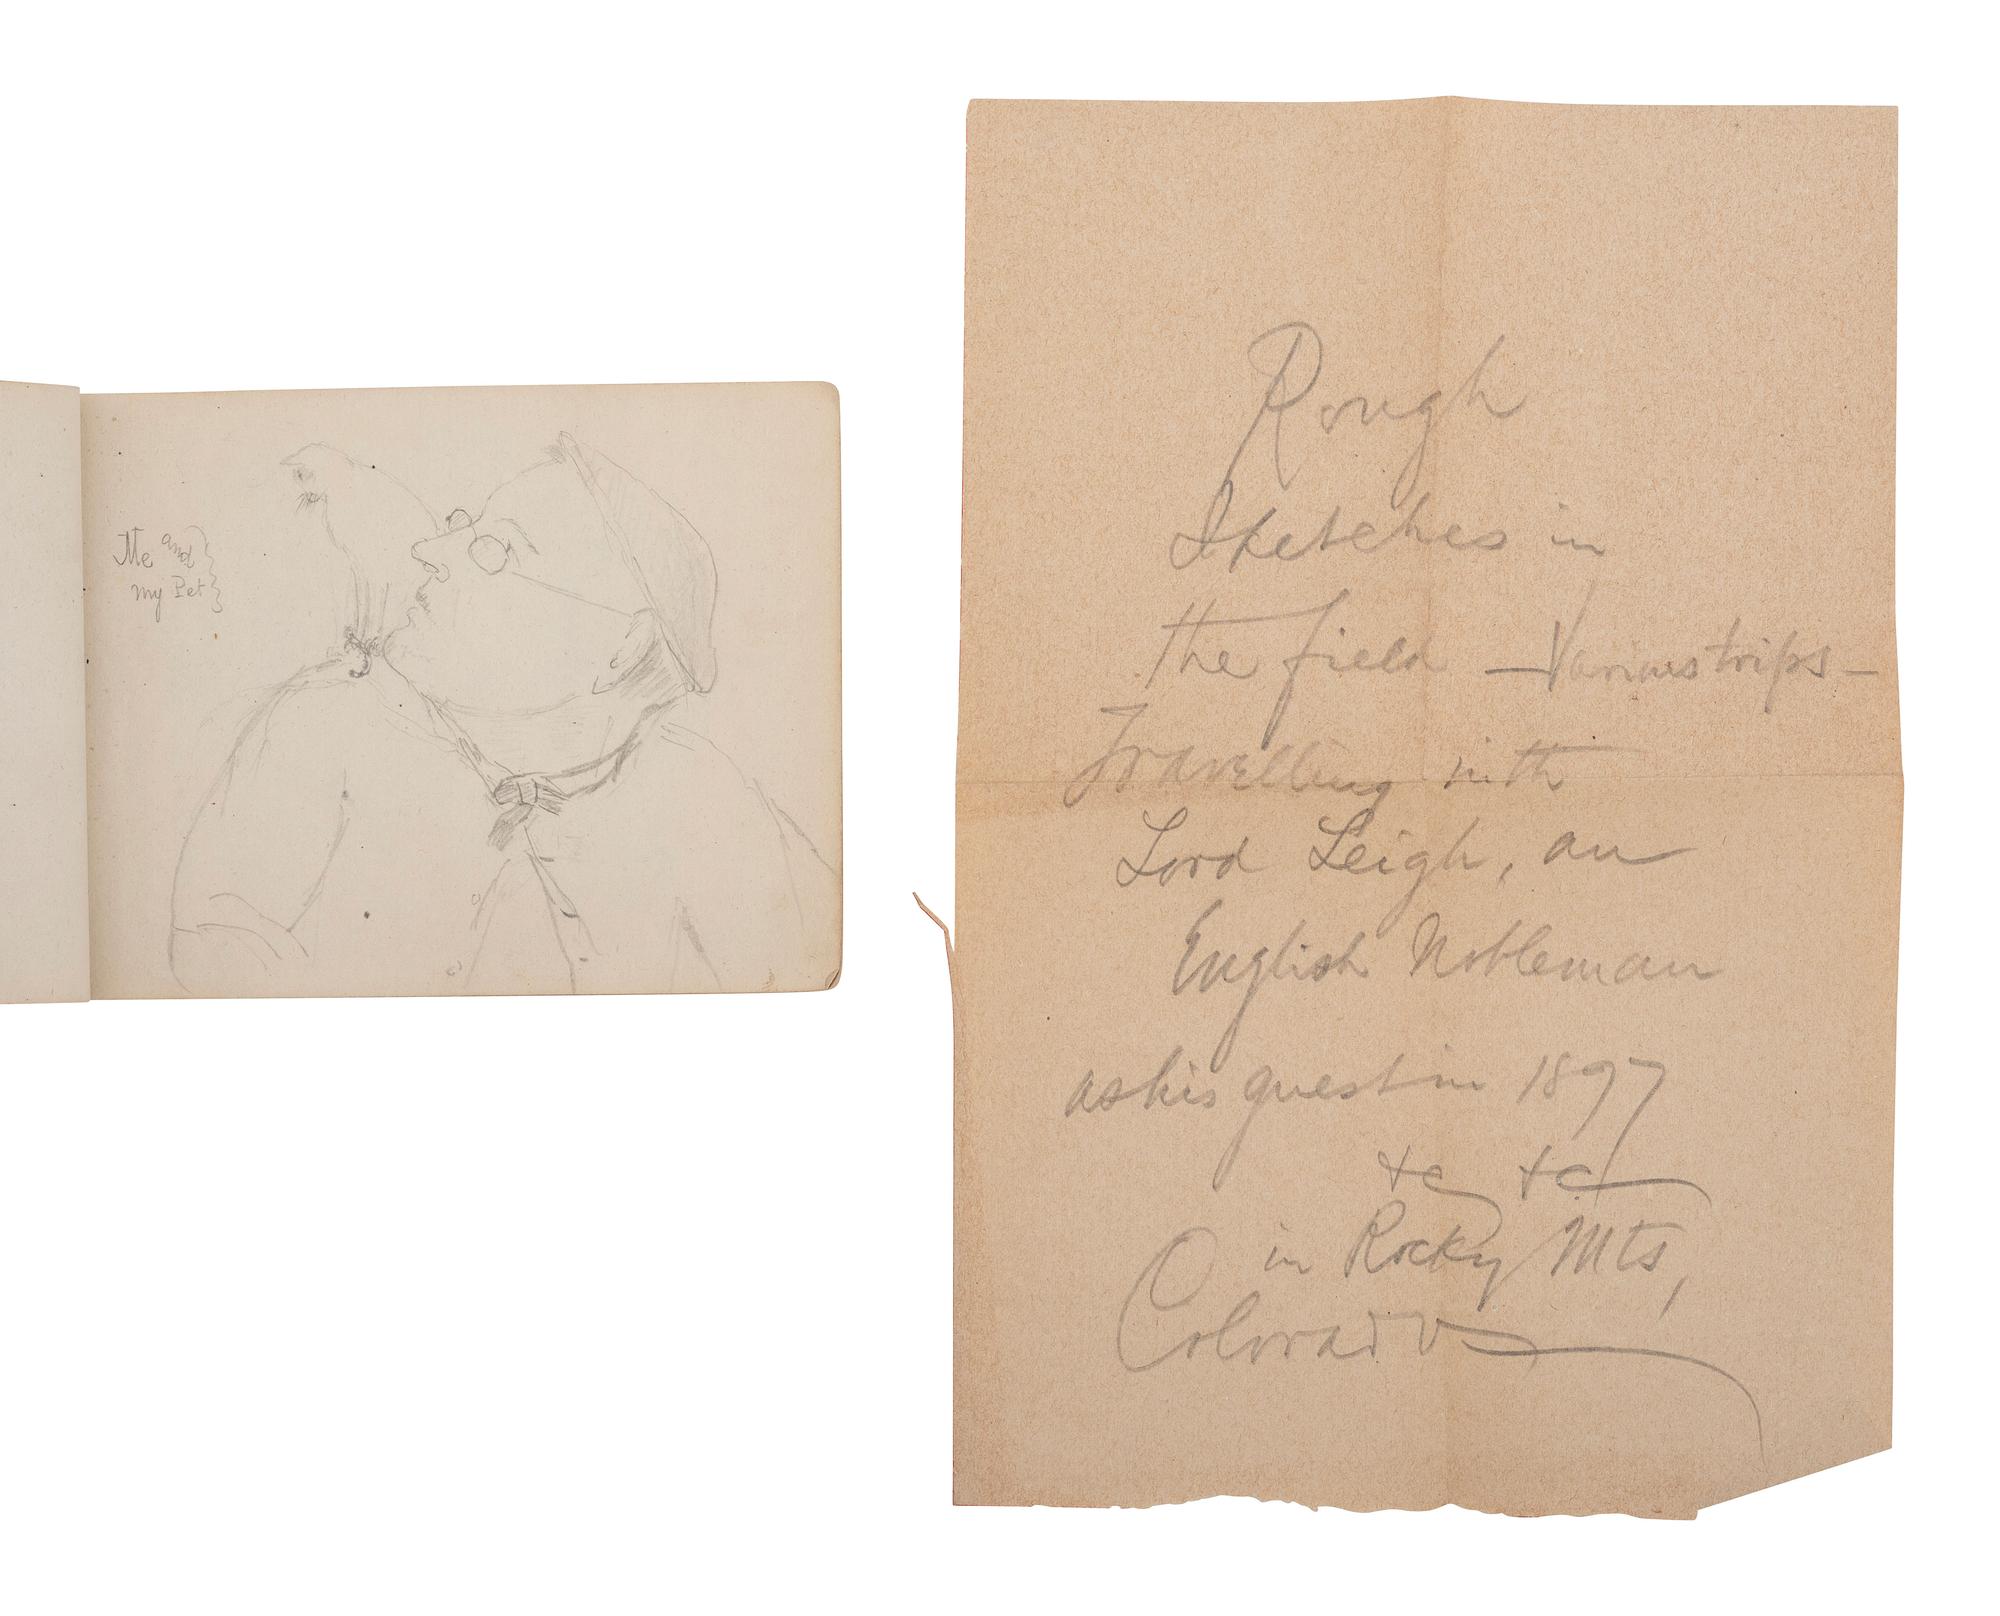 Me and
my Pet
Rough
Sketches in
the field – Various trips –
Travelling with
Lord Leigh, an
English Nobleman
as his guest in 1897
+c +c
in Rocky Mts,
Colorado